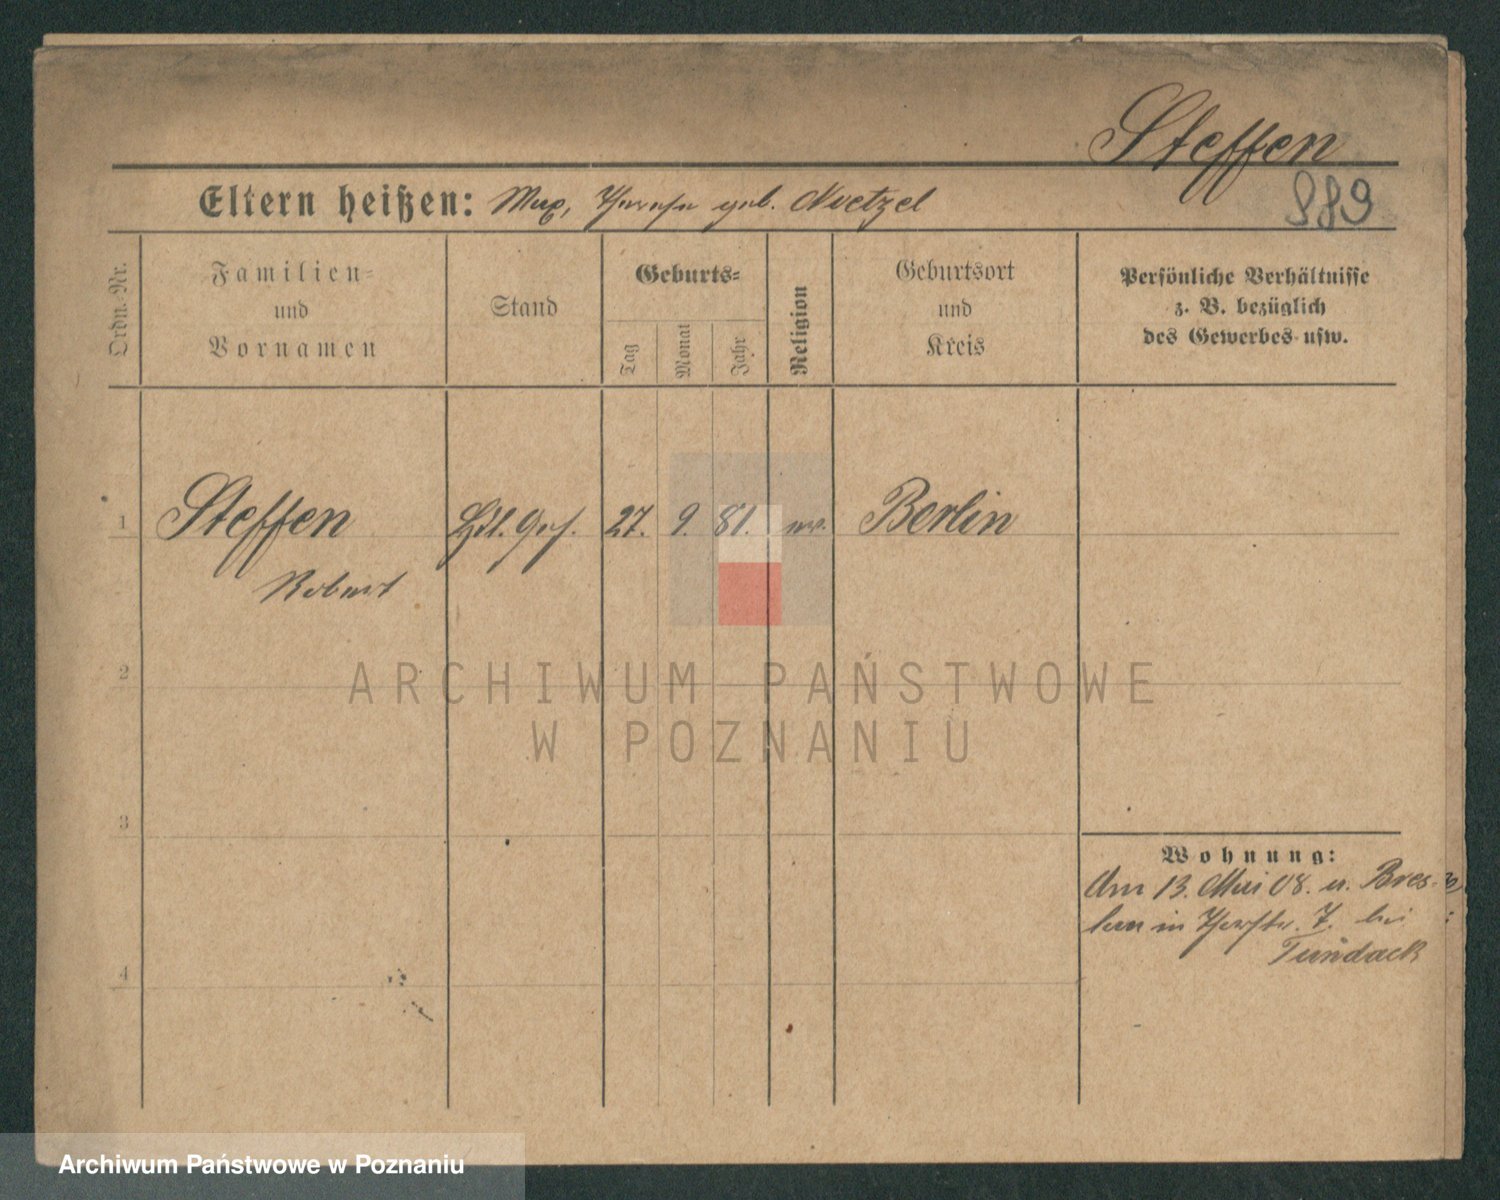 Steffen
889
Eltern heißen: Max, Therese geb. Noetzel
Ordn. Nr.
Familien-
und
Vornamen
Stand
Geburts-
Tag
Monat
Jahr
Religion
Geburtsort
und
Kreis
Persönliche Verhältnisse
z. B. bezüglich
des Gewerbes usw.
1
Steffen
Hdl. Geh. 27. 9. 81. ev. Berlin
Robert
2
ARCHIWUM PAŃSTWOWE
W POZNANIU
3
Wohnung:
Am 13. Mai 08. v. Bres-
lau in Theystr. 7. bei
Tundack
4
Archiwum Państwowe w Poznaniu